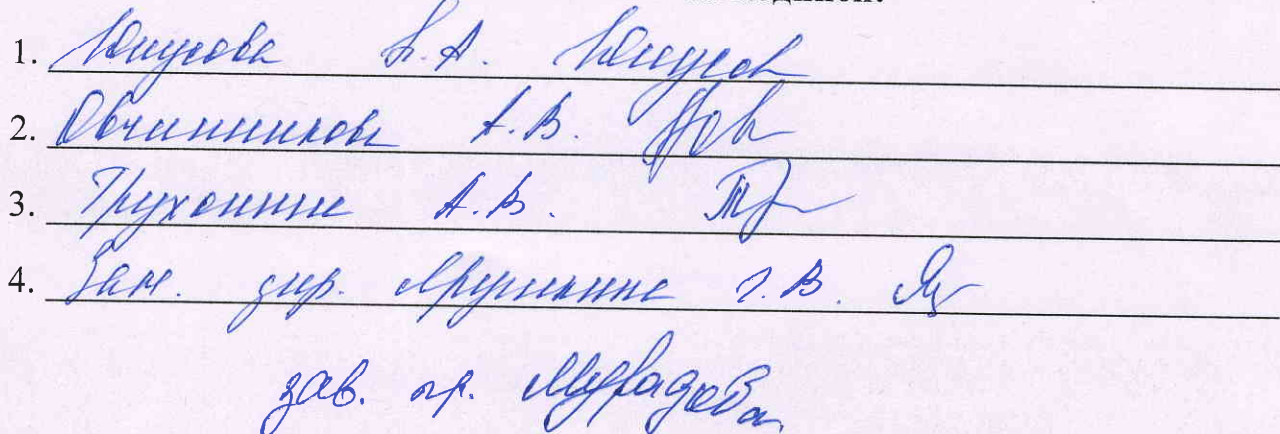 1. Юнусова А.А. Юнусов
2. Овчинникова А.В.
3. Трухонина А.В.
4. Зам. дир. Г.В.
зав. пр. Мурадова